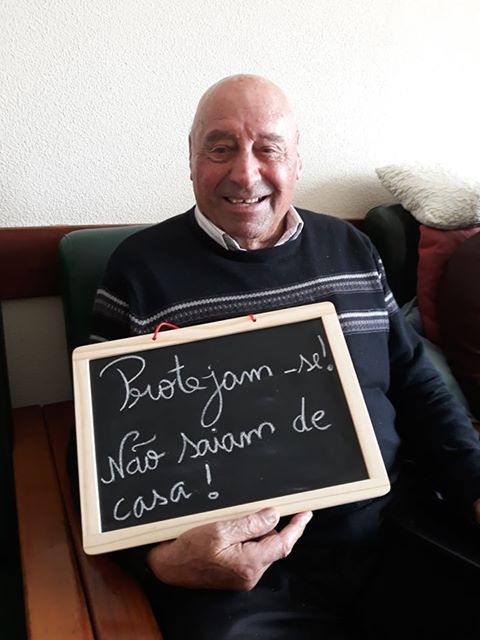 Protejam-se!
Não saiam de
casa!